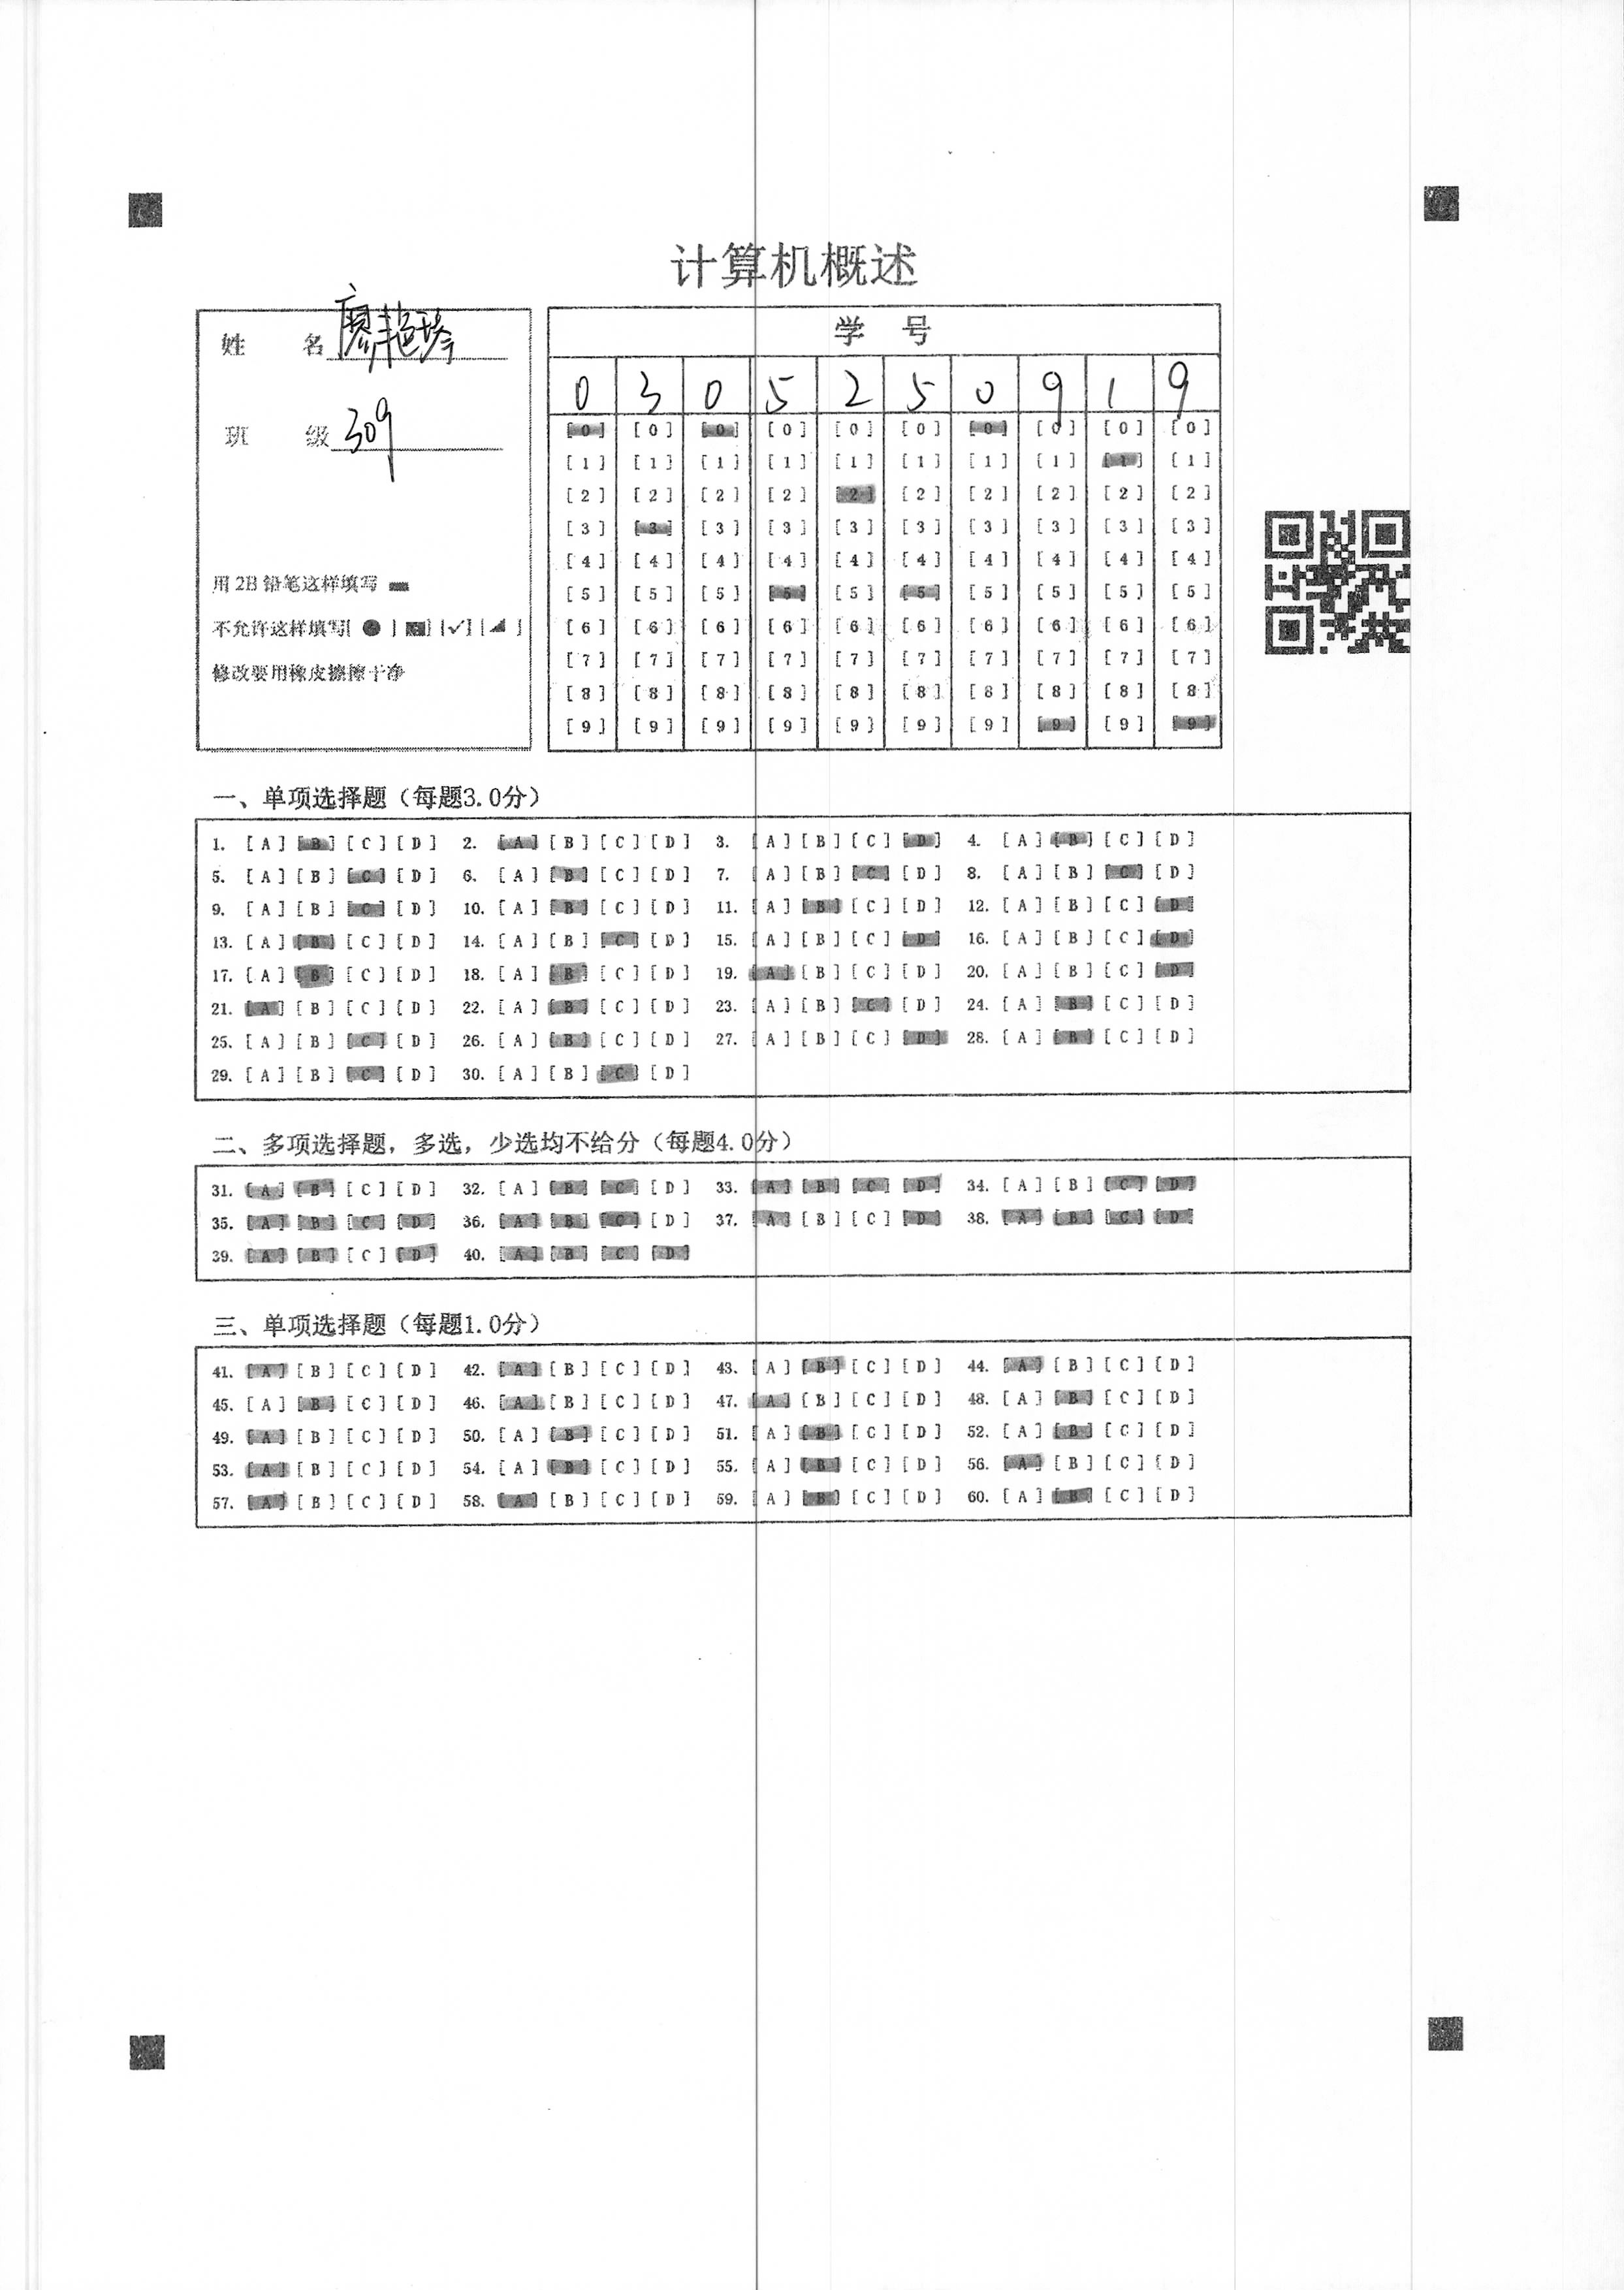 计算机概述
姓 名 廖艳琴
班 级 309
用 2B 铅笔这样填写
不允许这样填写[●] [■] [✓] [◢]
修改要用橡皮擦擦干净
学 号
0 3 0 5 2 5 0 9 1 9
[0] [0] [0] [0] [0] [0] [0] [0] [0] [0]
[1] [1] [1] [1] [1] [1] [1] [1] [1] [1]
[2] [2] [2] [2] [2] [2] [2] [2] [2] [2]
[3] [3] [3] [3] [3] [3] [3] [3] [3] [3]
[4] [4] [4] [4] [4] [4] [4] [4] [4] [4]
[5] [5] [5] [5] [5] [5] [5] [5] [5] [5]
[6] [6] [6] [6] [6] [6] [6] [6] [6] [6]
[7] [7] [7] [7] [7] [7] [7] [7] [7] [7]
[8] [8] [8] [8] [8] [8] [8] [8] [8] [8]
[9] [9] [9] [9] [9] [9] [9] [9] [9] [9]
一、单项选择题（每题3.0分）
1. [A] [B] [C] [D] 2. [A] [B] [C] [D] 3. [A] [B] [C] [D] 4. [A] [B] [C] [D]
5. [A] [B] [C] [D] 6. [A] [B] [C] [D] 7. [A] [B] [C] [D] 8. [A] [B] [C] [D]
9. [A] [B] [C] [D] 10. [A] [B] [C] [D] 11. [A] [B] [C] [D] 12. [A] [B] [C] [D]
13. [A] [B] [C] [D] 14. [A] [B] [C] [D] 15. [A] [B] [C] [D] 16. [A] [B] [C] [D]
17. [A] [B] [C] [D] 18. [A] [B] [C] [D] 19. [A] [B] [C] [D] 20. [A] [B] [C] [D]
21. [A] [B] [C] [D] 22. [A] [B] [C] [D] 23. [A] [B] [C] [D] 24. [A] [B] [C] [D]
25. [A] [B] [C] [D] 26. [A] [B] [C] [D] 27. [A] [B] [C] [D] 28. [A] [B] [C] [D]
29. [A] [B] [C] [D] 30. [A] [B] [C] [D]
二、多项选择题，多选，少选均不给分（每题4.0分）
31. [A] [B] [C] [D] 32. [A] [B] [C] [D] 33. [A] [B] [C] [D] 34. [A] [B] [C] [D]
35. [A] [B] [C] [D] 36. [A] [B] [C] [D] 37. [A] [B] [C] [D] 38. [A] [B] [C] [D]
39. [A] [B] [C] [D] 40. [A] [B] [C] [D]
三、单项选择题（每题1.0分）
41. [A] [B] [C] [D] 42. [A] [B] [C] [D] 43. [A] [B] [C] [D] 44. [A] [B] [C] [D]
45. [A] [B] [C] [D] 46. [A] [B] [C] [D] 47. [A] [B] [C] [D] 48. [A] [B] [C] [D]
49. [A] [B] [C] [D] 50. [A] [B] [C] [D] 51. [A] [B] [C] [D] 52. [A] [B] [C] [D]
53. [A] [B] [C] [D] 54. [A] [B] [C] [D] 55. [A] [B] [C] [D] 56. [A] [B] [C] [D]
57. [A] [B] [C] [D] 58. [A] [B] [C] [D] 59. [A] [B] [C] [D] 60. [A] [B] [C] [D]